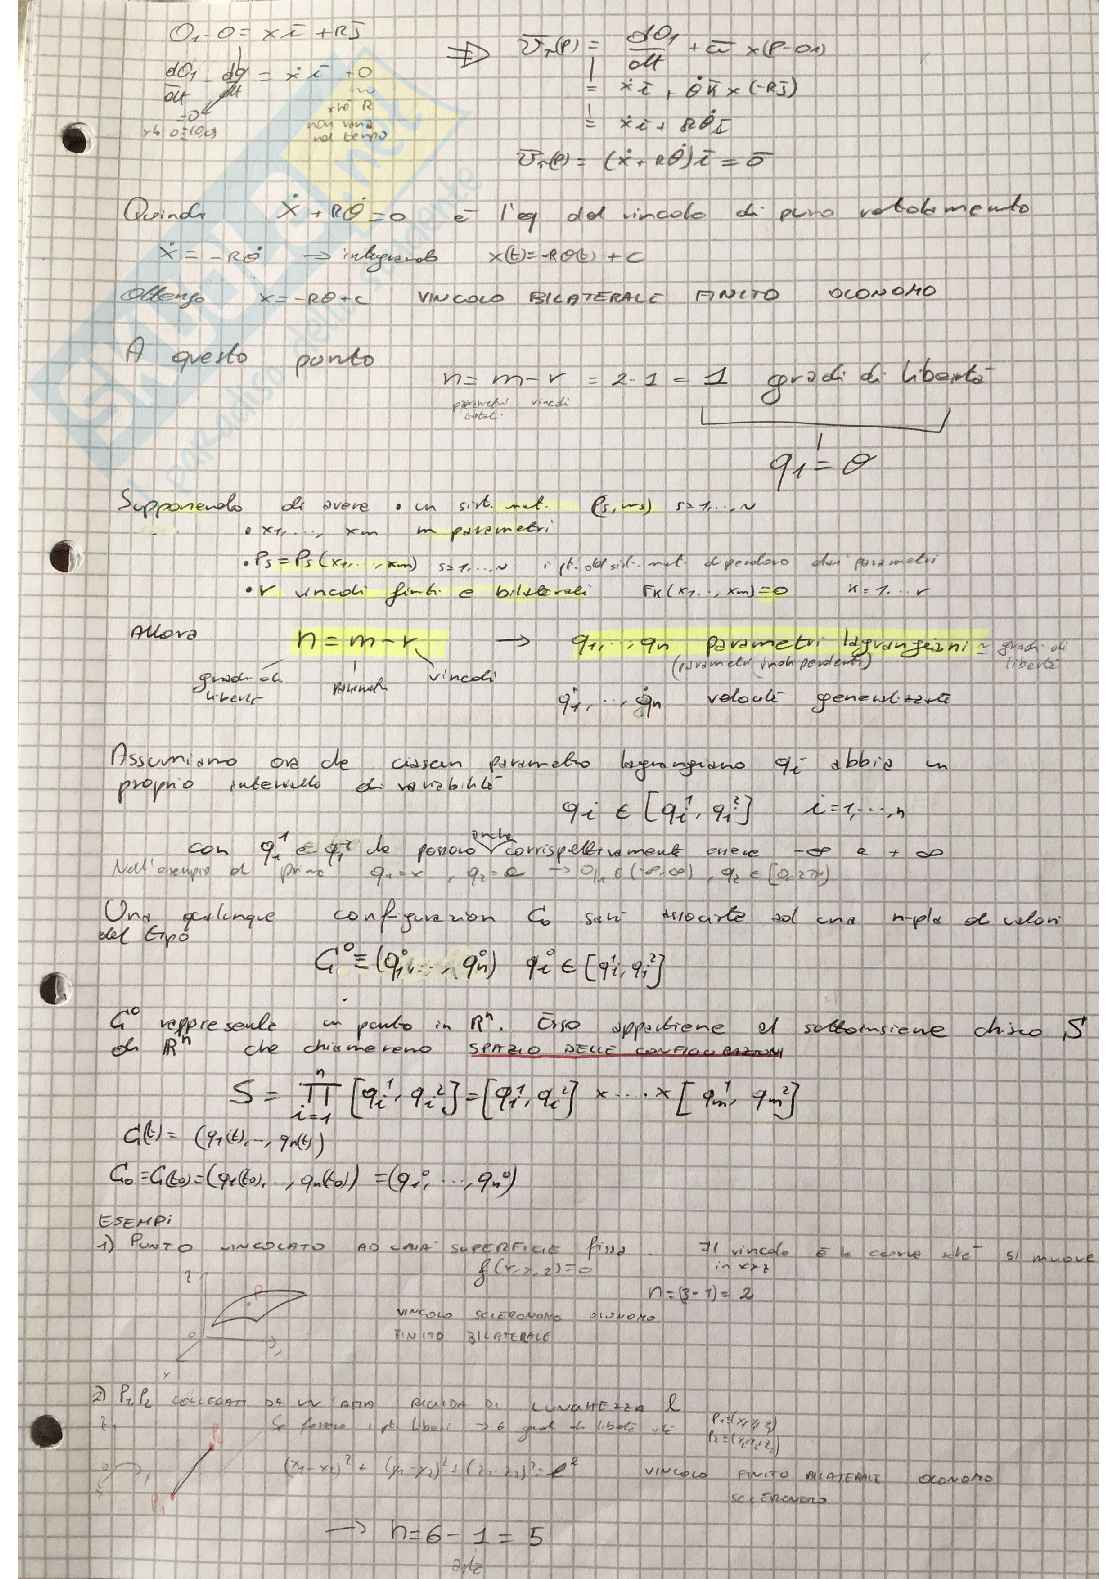 O₁-O = x ī + R j̄
dO₁/dt - dO/dt = ẋ ī + 0
=0
xké R
non varia
nel tempo
xké O=(0,0)
⇒ v̄_τ(P) = dO₁/dt + ω̄ x (P-O₁)
= ẋ ī + θ̇ k̄ x (-R j̄)
= ẋ ī + Rθ̇ ī
v̄_τ(P) = (ẋ + Rθ̇) ī = ō
Quindi ẋ + Rθ̇ = 0 è l'eq del vincolo di puro rotolamento
ẋ = -Rθ̇ → integrando x(t) = -Rθ(t) + c
Ottengo x = -Rθ + c VINCOLO BILATERALE FINITO OLONOMO
A questo punto
n = m - r = 2 - 1 = 1 gradi di libertà
parametri totali vincoli
q₁ = θ
Supponendo di avere • un sist. mat. (Ps, ms) s=1,...,N
• x₁, ..., xm m parametri
• Ps = Ps (x₁, ..., xm) s=1,...,N i pt. del sist. mat. dipendono dai parametri
• r vincoli finiti e bilaterali Fk(x₁,..., xm) = 0 k=1...r
Allora n = m - r → q₁,..., qn parametri lagrangiani = gradi di libertà
(parametri indipendenti)
gradi di libertà parametri vincoli
q̇₁, ..., q̇n velocità generalizzate
Assumiamo ora che ciascun parametro lagrangiano qi abbia un
proprio intervallo di variabilità
qi ∈ [qi¹, qi²] i=1,...,n
con qi¹ e qi² che possono anche corrispettivamente essere -∞ e +∞
Nell'esempio di prima q₁=x, q₂=θ → q₁ ∈ (-∞,∞), q₂ ∈ [0,2π)
Una qualunque configurazion C₀ sarà associata ad una n-pla di valori
del tipo
C⁰ ≡ (q₁⁰, ..., qn⁰) qi⁰ ∈ [qi¹, qi²]
C⁰ rappresenta un punto in Rⁿ. Esso appartiene al sottoinsieme chiuso S
di Rⁿ che chiameremo SPAZIO DELLE CONFIGURAZIONI
S = ∏ i=1 n [qi¹, qi²] = [q₁¹, qi²] x ... x [qm¹, qm²]
C(t) = (q₁(t), ..., qn(t))
C₀ = C(t₀) = (q₁(t₀), ..., qn(t₀)) = (q₁⁰, ..., qn⁰)
ESEMPI
1) PUNTO VINCOLATO AD UNA SUPERFICIE fissa Il vincolo è la xké si muove
f(x,y,z) = 0 in xyz
n = (3-1) = 2
VINCOLO SCLERONOMO OLONOMO
FINITO BILATERALE
2) P₁P₂ COLLEGATI DA UN ASTA RIGIDA DI LUNGHEZZA l
Se fossero i pt liberi → 6 gradi di libertà P₁=(x₁,y₁,z₁)
P₂=(x₂,y₂,z₂)
(x₁-x₂)² + (y₁-y₂)² + (z₁-z₂)² = l² VINCOLO FINITO BILATERALE OLONOMO
SCLERONOMO
→ n = 6 - 1 = 5